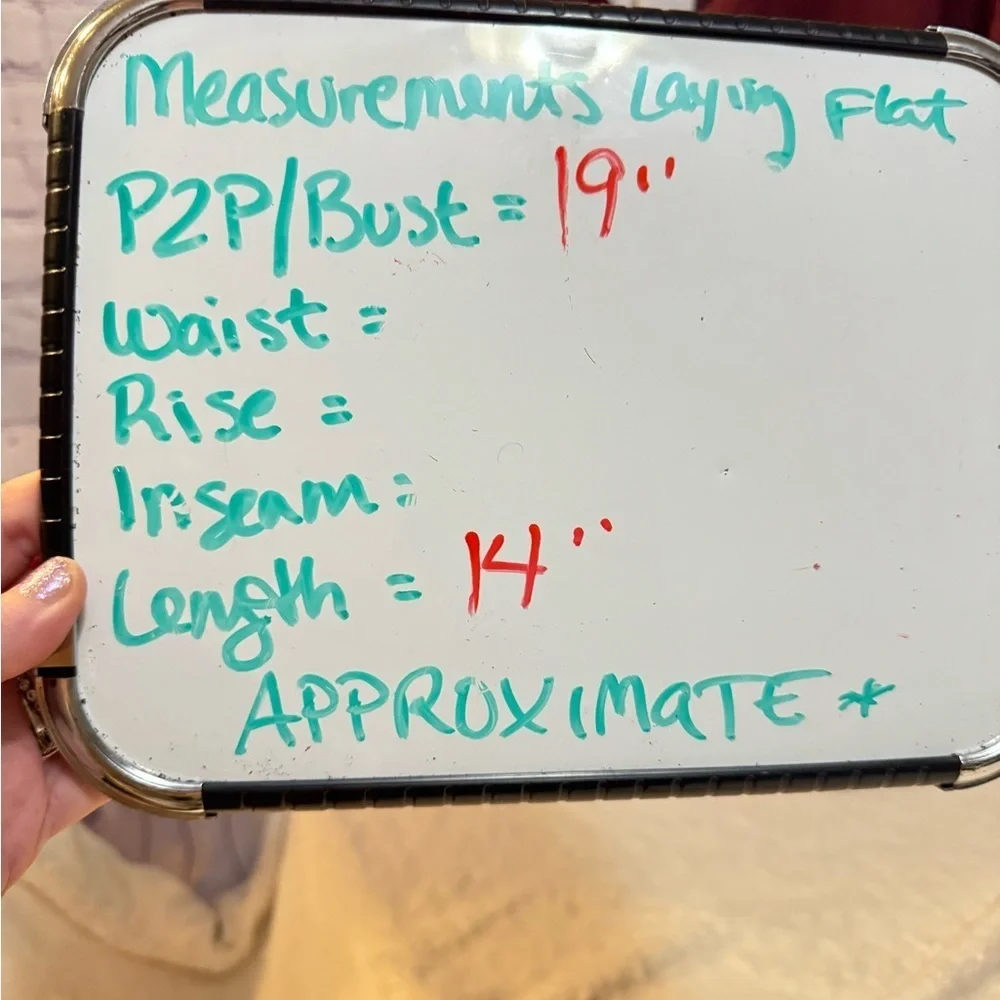 Measurements Laying Flat
P2P/Bust = 19"
Waist =
Rise =
Inseam =
Length = 14"
APPROXIMaTE *